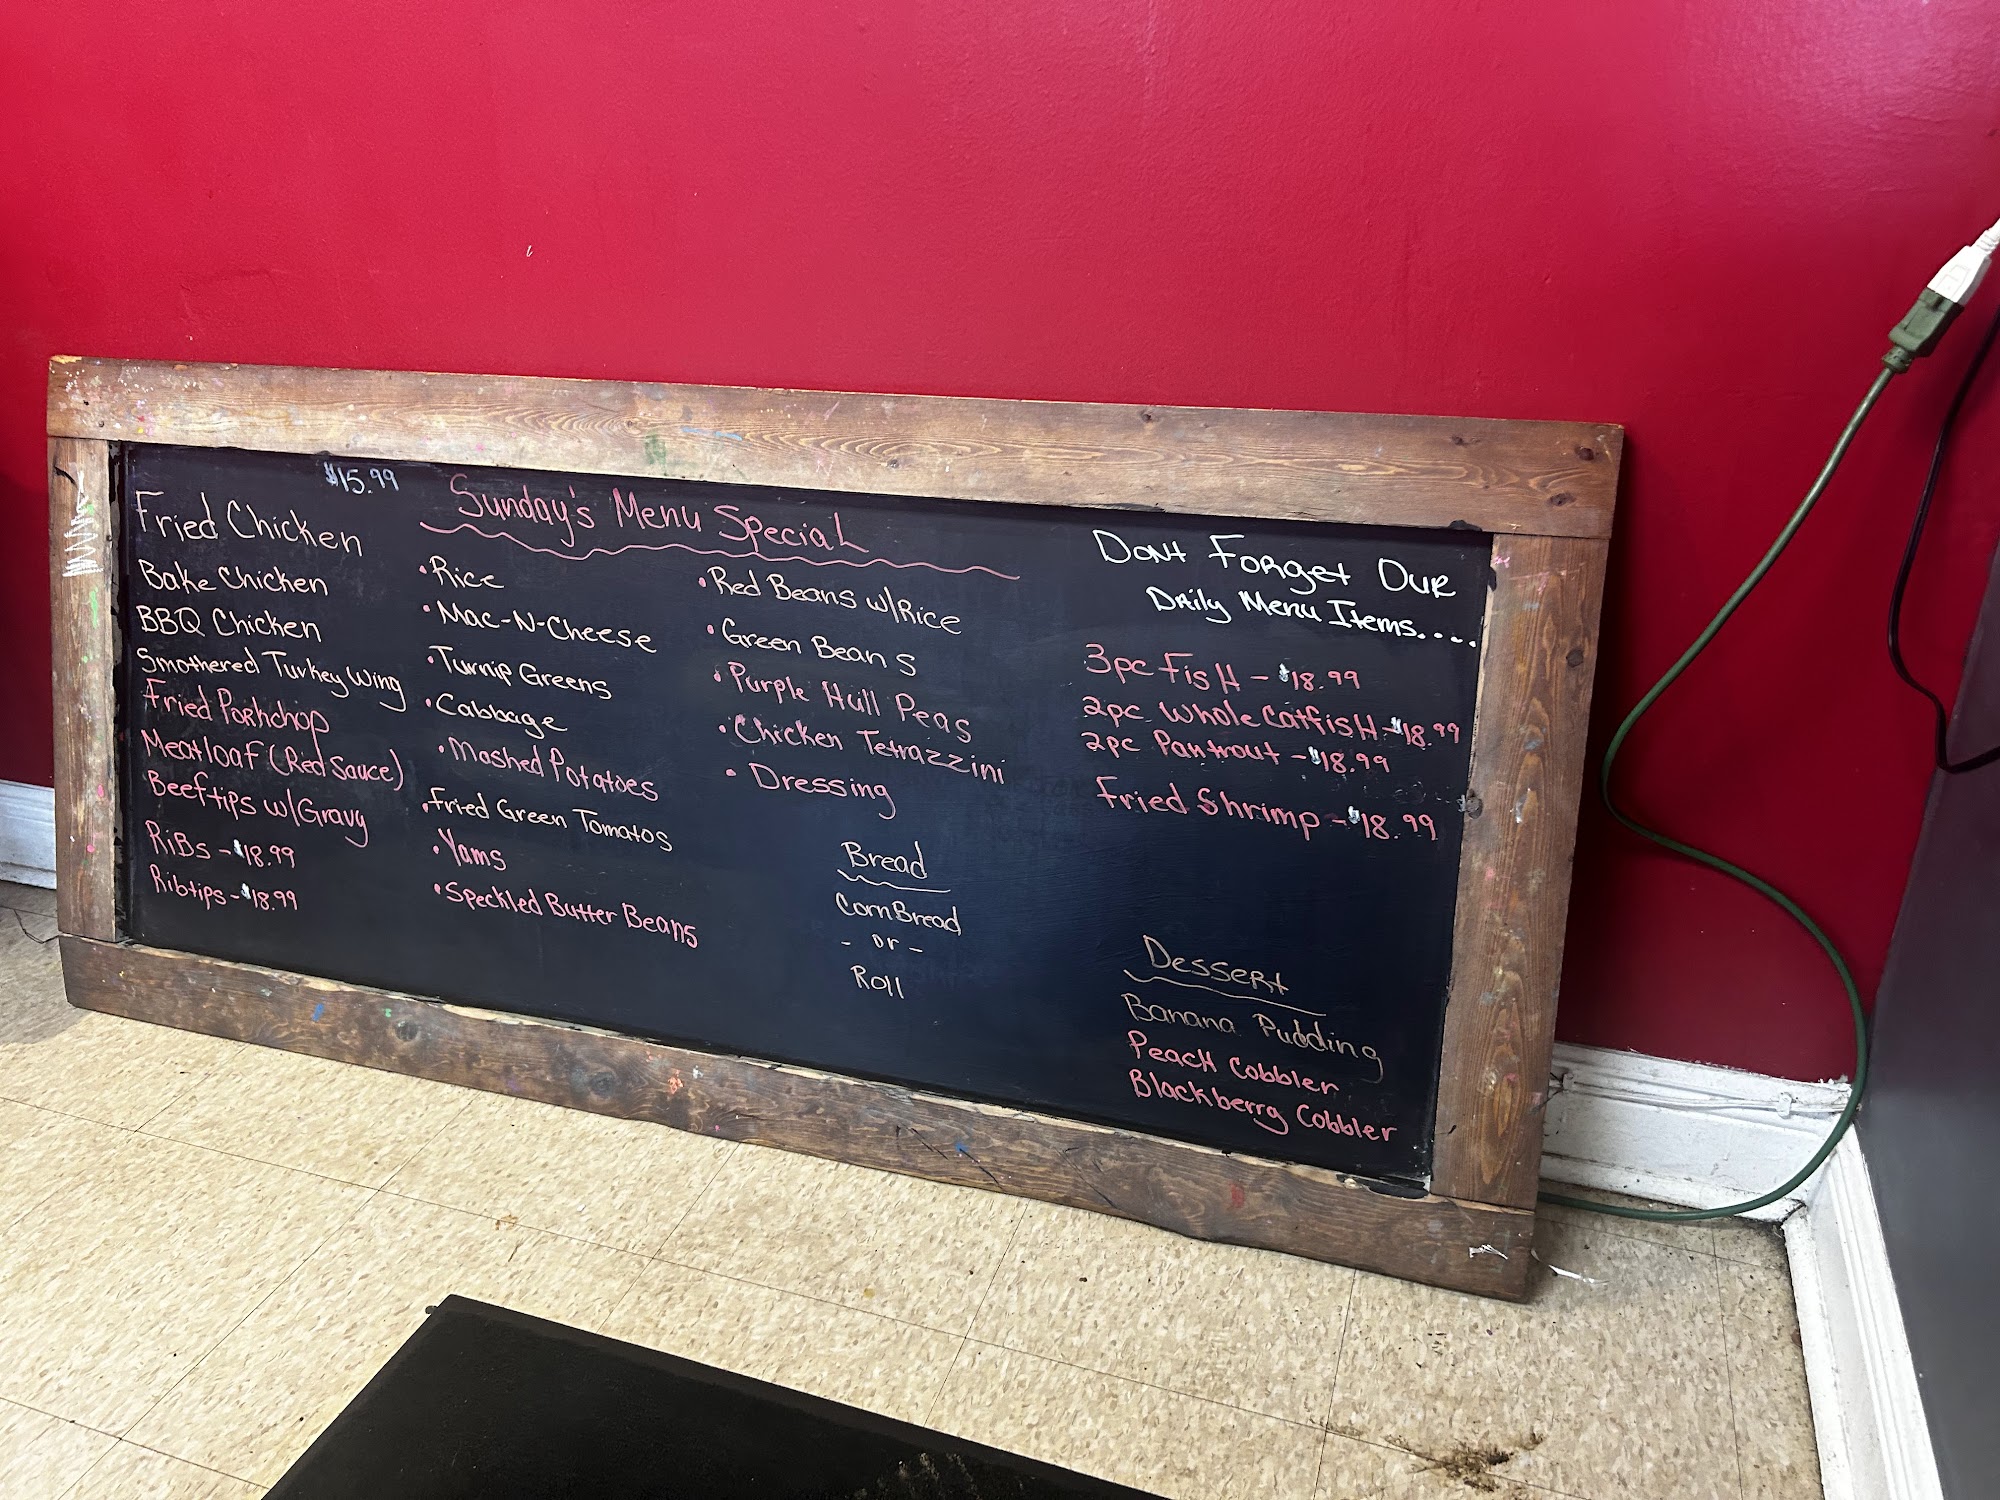 $15.99
Sunday's Menu Special
Fried Chicken
Bake Chicken
BBQ Chicken
Smothered Turkey Wing
Fried Porkchop
Meatloaf (Red Sauce)
Beeftips w/Gravy
RiBs - $18.99
Ribtips - $18.99
• Rice
• Mac-N-Cheese
• Turnip Greens
• Cabbage
• Mashed Potatoes
• Fried Green Tomatos
• Yams
• Speckled Butter Beans
• Red Beans w/Rice
• Green Beans
• Purple Hull Peas
• Chicken Tetrazzini
• Dressing
Bread
CornBread
- or -
Roll
Dont Forget Our
Daily Menu Items.....
3pc Fish - $18.99
2pc Whole Catfish - $18.99
2pc Pantrout - $18.99
Fried Shrimp - $18.99
Dessert
Banana Pudding
Peach Cobbler
Blackberry Cobbler